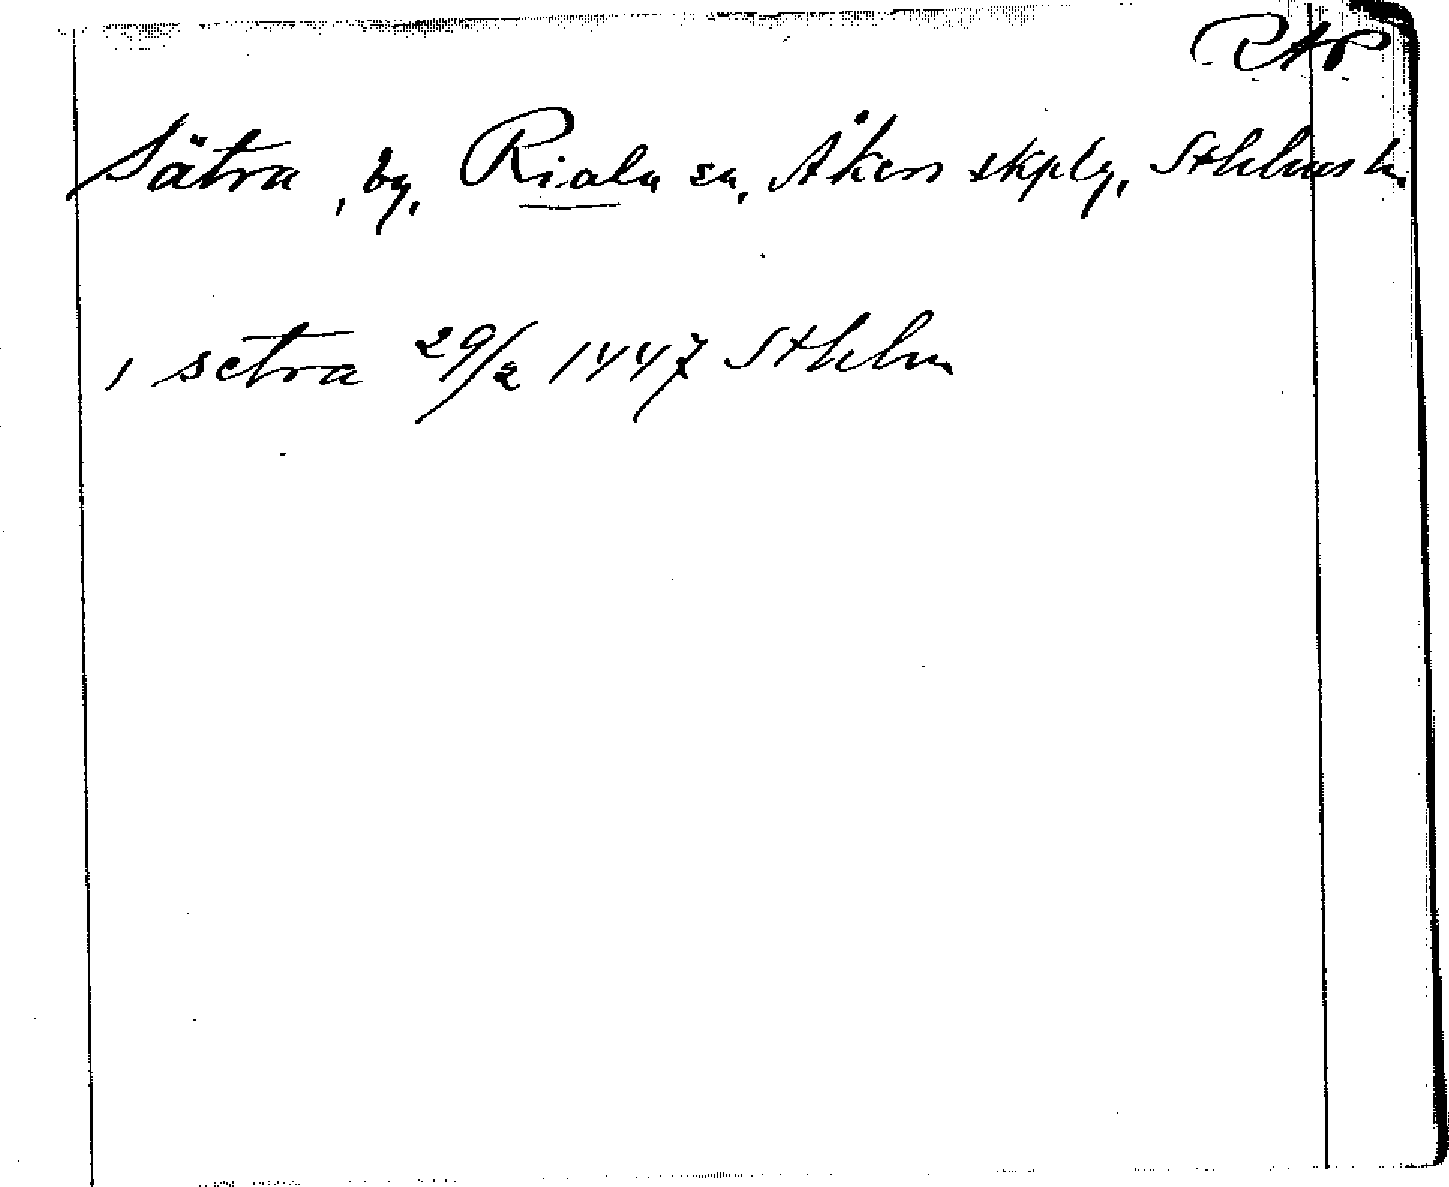 RAP
Sätra, by, Riala sn, Åkers skplg, Sthlms l.
i setra 29/2 1447 Sthlm